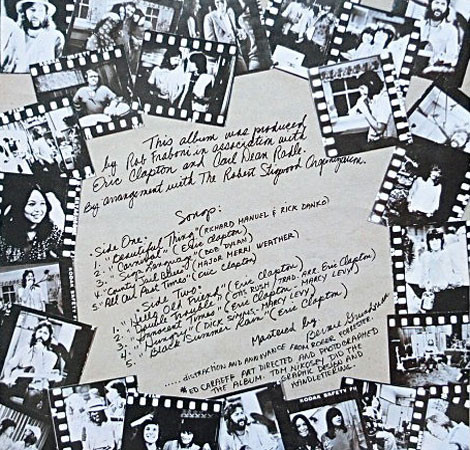 This album was produced
by Rob Fraboni in association with
Eric Clapton and Carl Dean Radle.
By arrangement with The Robert Stigwood Organization.
Songs:
Side One.
1. "Beautiful Thing" (RICHARD MANUEL & RICK DANKO)
2. "Carnival" (Eric Clapton)
3. "Sign Language" (BOB DYLAN)
4. "County Jail Blues" (MAJOR MERRI WEATHER)
5. "All Our Past Times" (Eric Clapton)
Side Two.
1. "Hello Old Friend" (Eric Clapton)
2. "Double Trouble" (OTIS RUSH / TRAD. ARR. Eric Clapton)
3. "Innocent Times" (Eric Clapton, MARCY LEVY)
4. "Hungry" (DICK SIMMS, MARCY LEVY)
5. "Black Summer Rain" (Eric Clapton)
Mastered by Bernie Grundman
..... DISTRACTION AND ANNOYANCE FROM ROGER FORRESTER.
ED CARAEFF ART DIRECTED AND PHOTOGRAPHED
THE ALBUM. TOM NIKOSEY DID THE
GRAPHIC DESIGN AND
HANDLETTERING.
KODAK SAFETY